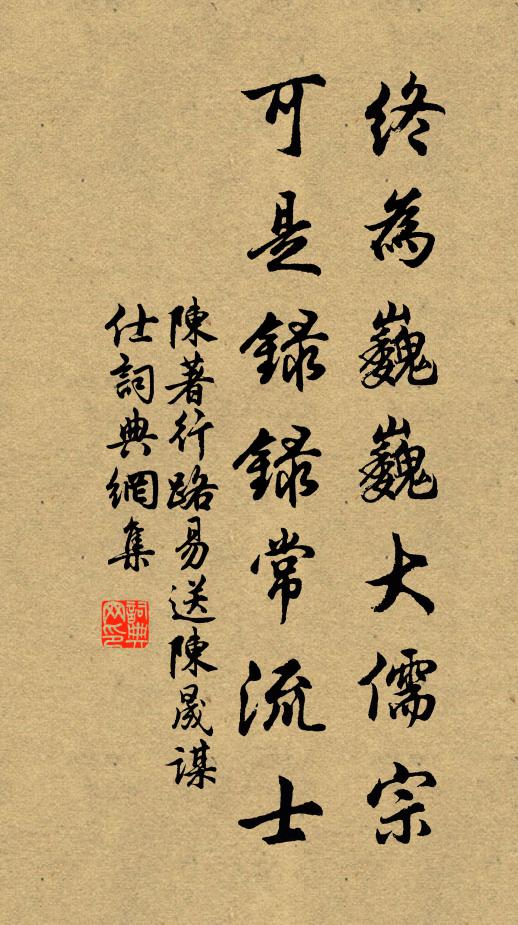 終為巍巍大儒宗
可是録録常流士
陳著行路易送陳晟謀
仕詞典網集
詞典
网印